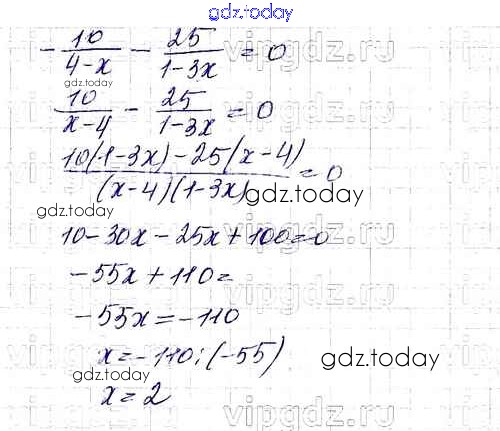 gdz.today
- 10/(4-x) - 25/(1-3x) = 0
gdz.today
10/(x-4) - 25/(1-3x) = 0
(10(1-3x) - 25(x-4))/((x-4)(1-3x)) = 0
gdz.today
gdz.today
10-30x-25x+100=0
-55x+110=
-55x=-110
x=-110:(-55)
gdz.today
x=2
vipgdz.ru